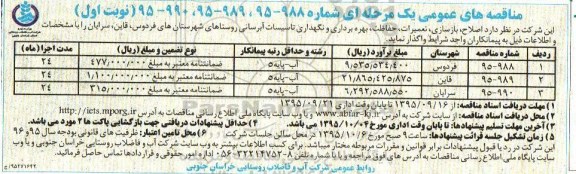 مناقصه های عمومی یک مرحله ای شماره ۹۸۸-۹۵، ۹۸۹-۹۵، ۹۹۰-۹۵ (نوبت اول)
این شرکت در نظر دارد اصلاح، بازسازی، تعمیرات، حفاظت، بهره برداری و نگهداری تاسیسات آبرسانی روستاهای شهرستان های فردوس، قاین، سرایان را با مشخصات
و اطلاعات ذیل به پیمانکاران واجد شرایط واگذار نماید.
ردیف شماره مناقصه شهرستان مبلغ برآورد (ریال) رشته و حداقل رتبه پیمانکار نوع تضمین و مبلغ (ریال) مدت اجرا (ماه)
۱ ۹۵-۹۸۸ فردوس ۹,۵۳۵,۵۳۴,۴۰۰ آب-پایه۵ ضمانتنامه معتبر به مبلغ ۴۷۷,۰۰۰,۰۰۰ ۲۴
۲ ۹۵-۹۸۹ قاین ۲۱,۸۶۵,۴۲۰,۸۷۵ آب-پایه۵ ضمانتنامه معتبر به مبلغ ۱,۱۰۰,۰۰۰,۰۰۰ ۲۴
۳ ۹۵-۹۹۰ سرایان ۶,۲۹۲,۵۸۸,۵۵۰ آب-پایه۵ ضمانتنامه معتبر به مبلغ ۳۱۵,۰۰۰,۰۰۰ ۲۴
۱) مهلت دریافت اسناد مناقصه: از ۱۳۹۵/۰۹/۱۶ تا پایان وقت اداری ۱۳۹۵/۰۹/۲۱
۲) محل دریافت اسناد مناقصه: از سایت شرکت به آدرس www.abfar-kj.ir و یا وب سایت پایگاه ملی اطلاع رسانی مناقصات به آدرس http://iets.mporg.ir
۳) آخرین مهلت تسلیم پیشنهادها: تا پایان وقت اداری مورخ ۱۳۹۵/۱۰/۰۴ ۴) حداقل پیشنهادات دریافتی جهت بازگشایی پاکت ها ۲ مورد می باشد.
۵) زمان تشکیل جلسه قرائت پیشنهادها: ساعت مورخ ۱۳۹۵/۱۰/۰۶ در محل سالن جلسات شرکت ۶) محل تامین اعتبار: ظرفیت های قانونی بودجه سال ۹۵ و ۹۶
این شرکت در رد یا قبول پیشنهادات برابر قوانین و مقررات مربوطه مختار میباشد. برای کسب اطلاعات بیشتر به وب سایت شرکت آب و فاضلاب روستایی خراسان جنوبی و یا وب
سایت پایگاه ملی اطلاع رسانی مناقصات به آدرس های فوق مراجعه و یا با شماره تلفن ۸-۳۲۲۱۴۷۵۲-۰۵۶ اداره امور حقوقی و قراردادها تماس حاصل فرمائید.
روابط عمومی شرکت آب و فاضلاب روستایی خراسان جنوبی